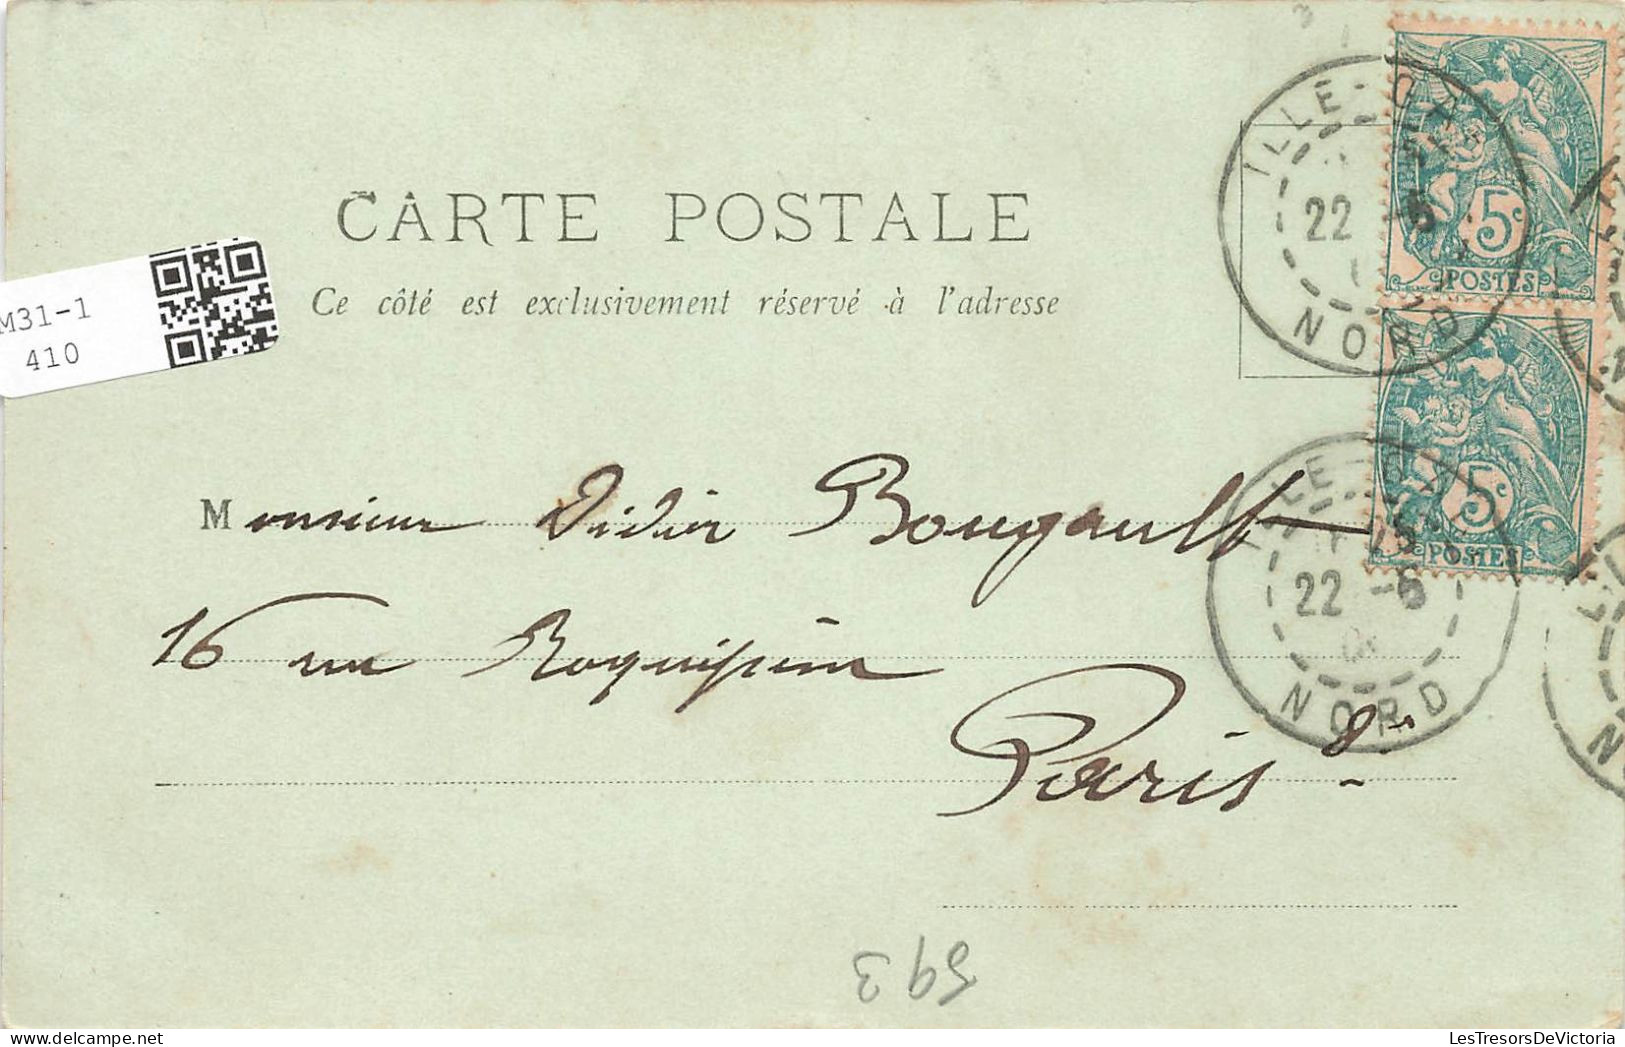 CARTE POSTALE
Ce côté est exclusivement réservé à l'adresse
M31-1
410
LILLE
22 -5
NORD
5c
POSTES
5c
POSTES
LILLE
22 -5
NORD
Monsieur Didier Bougault
16 rue Roquépine
Paris 8e
593
LesTresorsDeVictoria